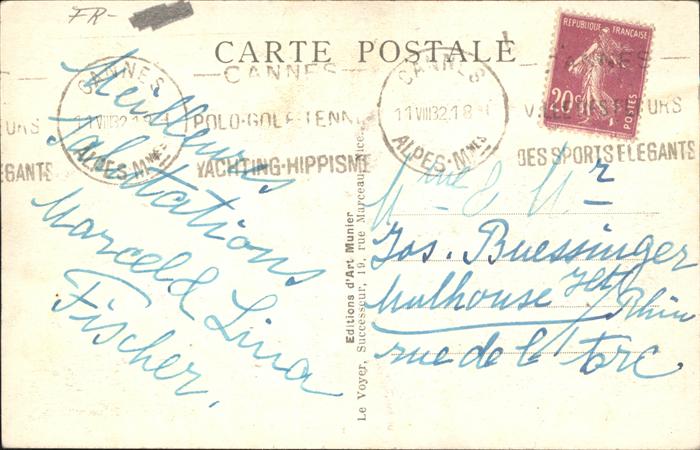 FR-
CARTE POSTALE
CANNES
11 VIII 32
ALPES-Mmes
CANNES
POLO-GOLF-TENN
YACHTING-HIPPISME
CANNES
11 VIII 32 18
ALPES-Mmes
CANNES
VILLE DES FLEURS
DES SPORTS ELEGANTS
URS
EGANTS
REPUBLIQUE FRANÇAISE
20c
POSTES
Meilleurs
salutations
Marcel & Lina
Fischer.
Editions d'Art Munier
Le Voyer, Successeur, 19, rue Marceau, Nice.
Mme & Mr
Jos. Buessinger
Mulhouse Htt/Rhin
rue de l'Arc